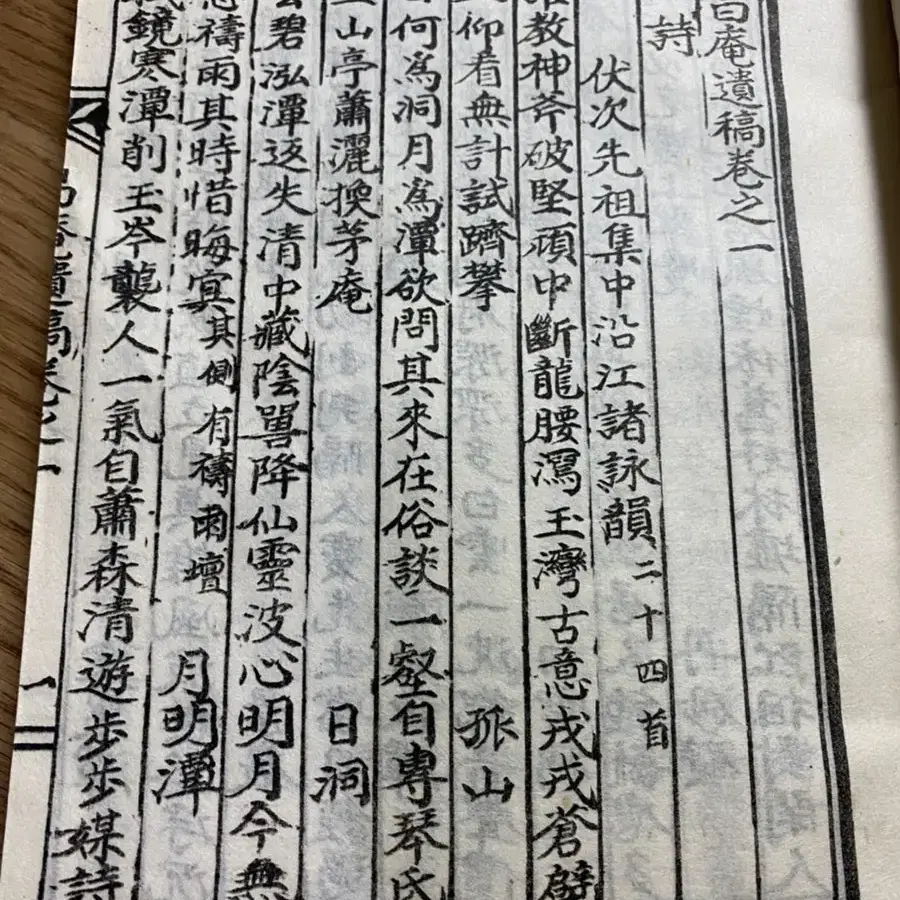 庵遺稿卷之一
詩
伏次先祖集中沿江諸詠韻 二十四首
教神斧破堅頑中斷龍腰瀉玉灣古意戎戎蒼壁
仰看無計試躋攀 孤山
何爲洞月爲潭欲問其來在俗談一壑自專琴氏
山亭蕭灑換茅庵 日洞
碧泓潭返失清中藏陰獸降仙靈波心明月今無
禱雨其時惜晦冥 其側有禱雨壇 月明潭
鏡寒潭削玉岑襲人一氣自蕭森清遊步步媒詩
遺稿卷之一 一